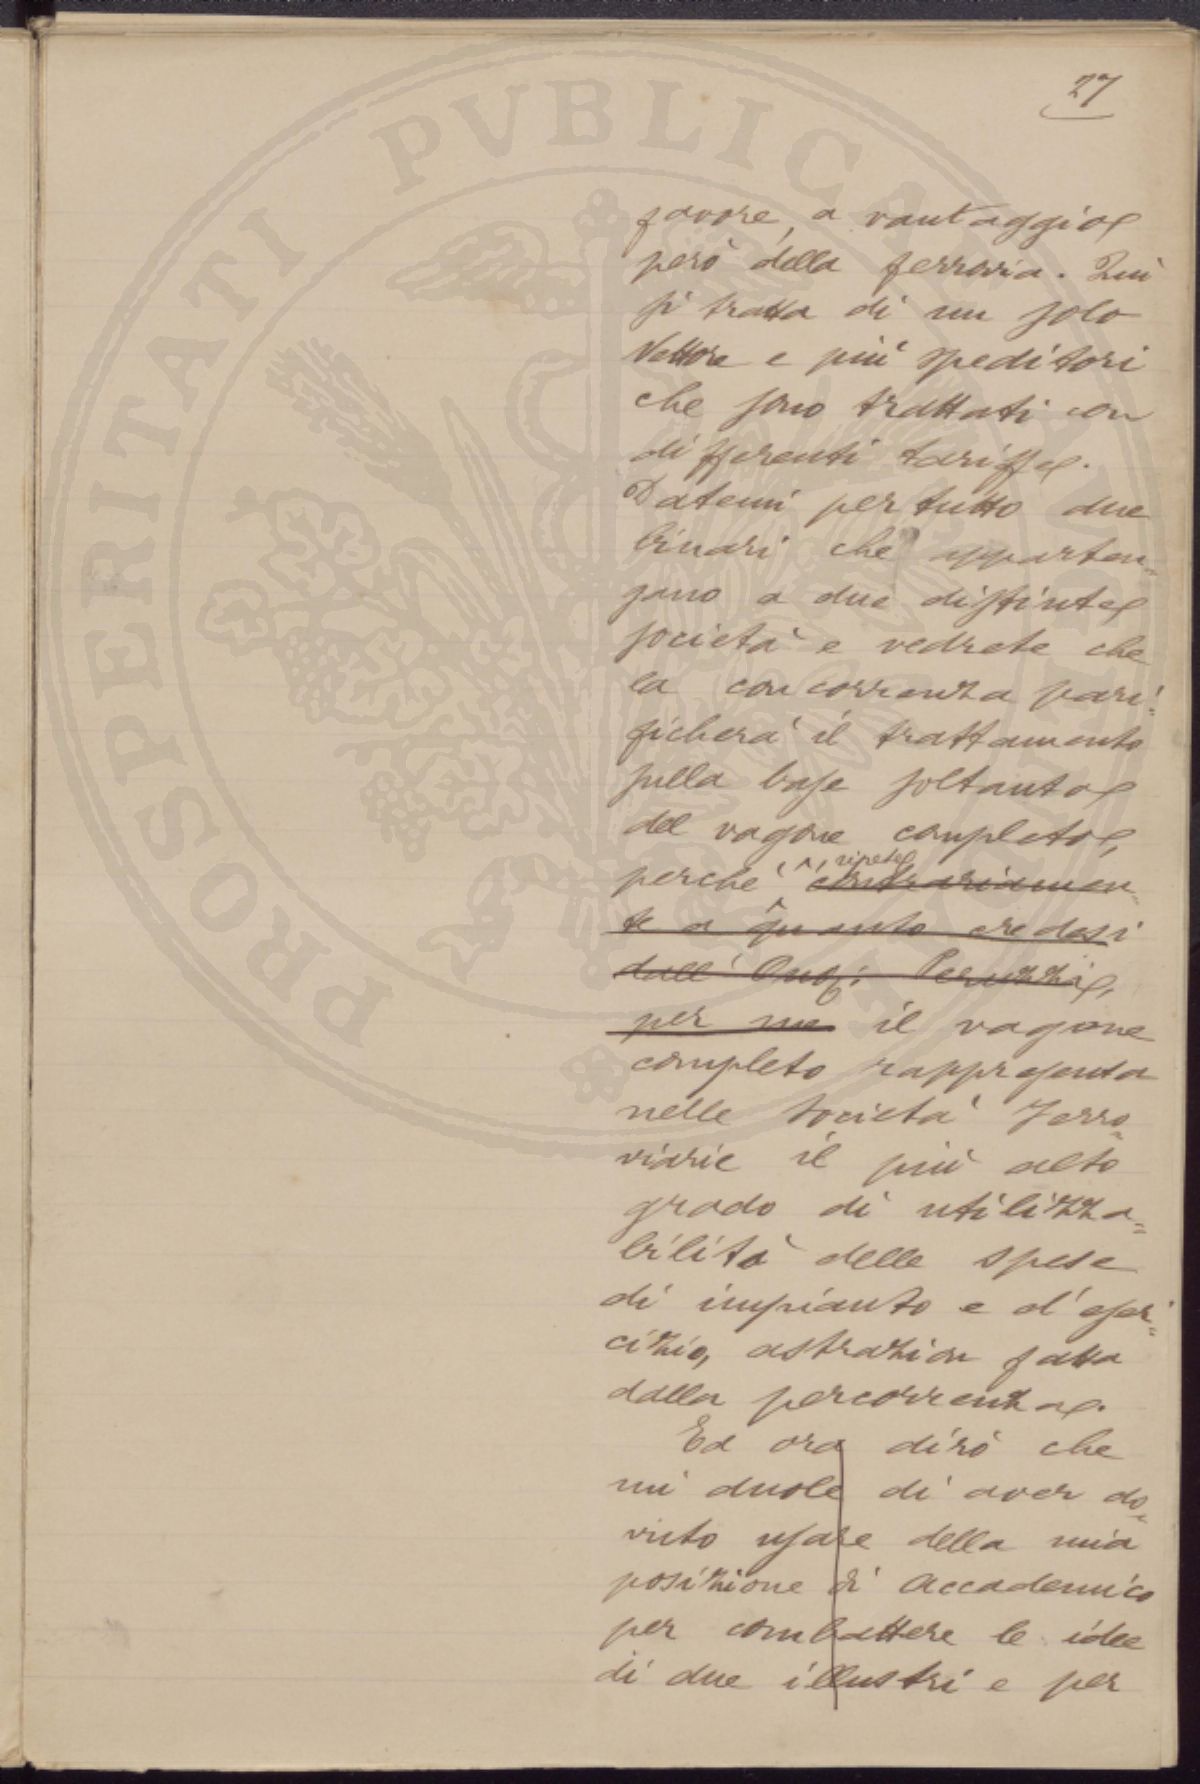 27
favore, a vantaggio
però della ferrovia. Qui
si tratta di un solo
Vettore e più speditori
che sono trattati con
differenti tariffe.
Datemi per tutto due
binari che apparten=
gano a due distinte
società e vedrete che
la concorrenza pari=
ficherà il trattamento
sulla base soltanto
del vagone completo,
ripeto
perché contrariamen=
te a quanto credesi
dall' Onor: Peruzzi,
per me il vagone
completo rappresenta
nelle Società Ferro=
viarie il più alto
grado di utilizza=
bilità delle spese
di impianto e d'eser=
cizio, astrazion fatta
dalla percorrenza.
Ed ora dirò che
mi duole di aver do=
vuto usare della mia
posizione di Accademico
per combattere le idee
di due illustri e per
PROSPERITATI PVBLICAE